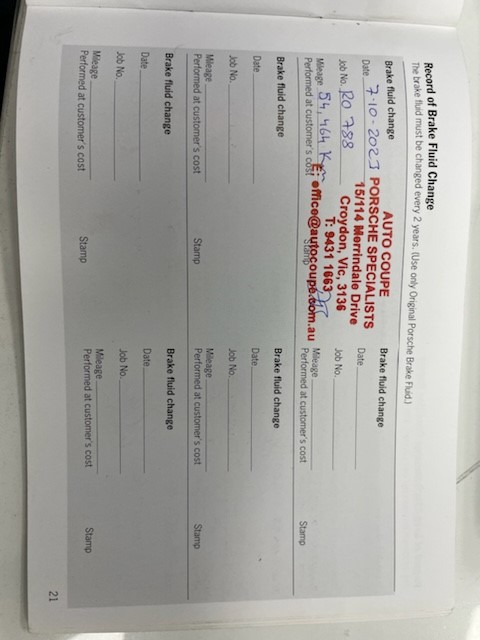 Record of Brake Fluid Change
The brake fluid must be changed every 2 years. (Use only Original Porsche Brake Fluid.)
Brake fluid change
Date 7-10-2023
Job No. RO 788
Mileage 54,464 Km
Performed at customer's cost
Stamp
AUTO COUPE
PORSCHE SPECIALISTS
15/114 Merrindale Drive
Croydon, Vic, 3136
T: 9431 1663
E: office@autocoupe.com.au
Brake fluid change
Date
Job No.
Mileage
Performed at customer's cost Stamp
Brake fluid change
Date
Job No.
Mileage
Performed at customer's cost Stamp
Brake fluid change
Date
Job No.
Mileage
Performed at customer's cost Stamp
Brake fluid change
Date
Job No.
Mileage
Performed at customer's cost Stamp
Brake fluid change
Date
Job No.
Mileage
Performed at customer's cost Stamp
21